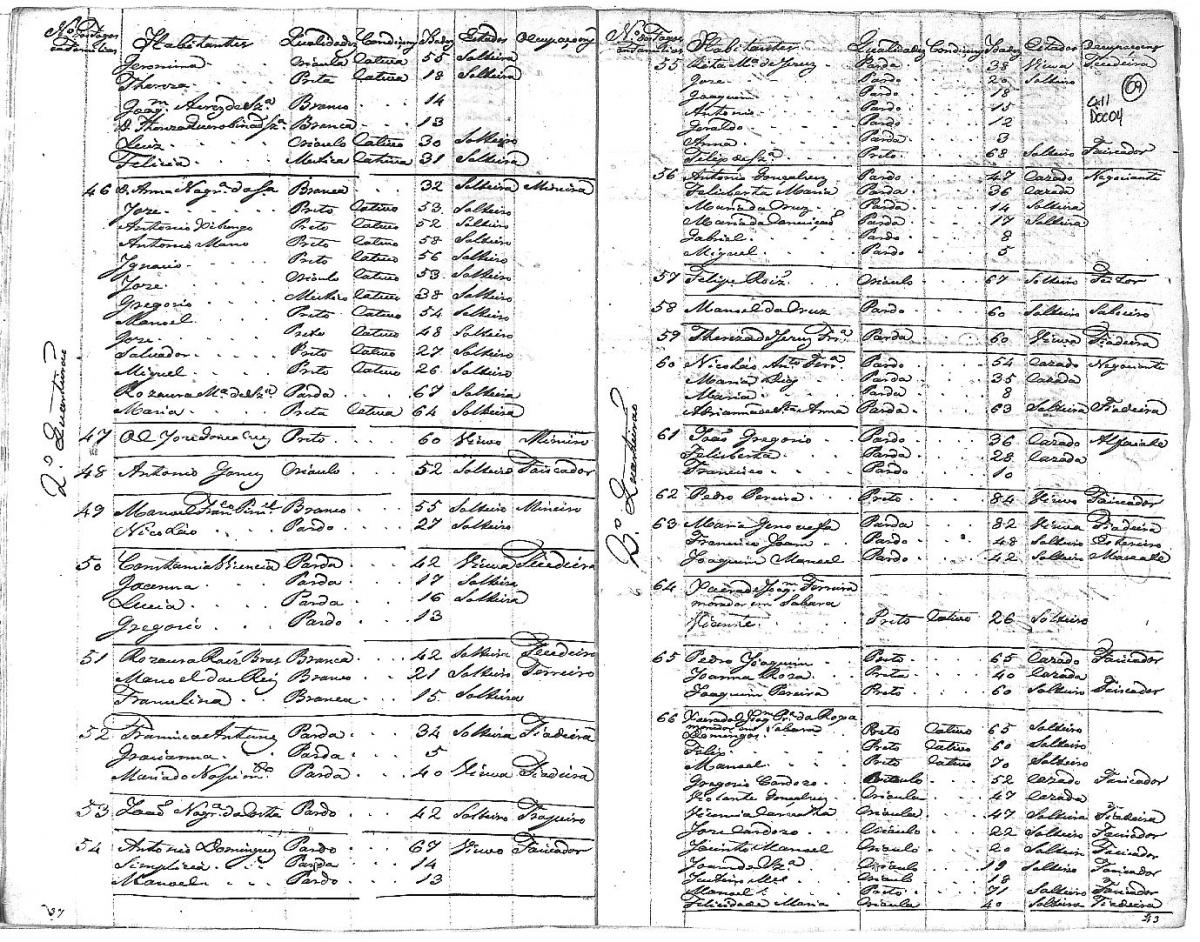 Nº dos Fogos e familias Habitantes Qualidades Condiçoens Idades Estados Ocupaçoens
Jeronima Crioula Cativa 55 Solteira
Thereza Preta Cativa 18 Solteira
Joaqm Branco 14
D. Thereza Branca 13
Luiz Crioulo Cativo 30 Solteiro
Felicia Mestiça Cativa 31 Solteira
46 D. Anna Branca 32 Solteira Mineira
Joze Preto Cativo 53 Solteiro
Antonio Preto Cativo 52 Solteiro
Antonio Preto Cativo 58 Solteiro
Ignacio Preto Cativo 56 Solteiro
Joze Crioulo Cativo 53 Solteiro
Gregorio Cativo 38 Solteiro
Manoel Preto Cativo 54 Solteiro
Joze Preto Cativo 48 Solteiro
Salvador Preto Cativo 27 Solteiro
Miguel Preto Cativo 26 Solteiro
Rozaura Mª de Szª Parda 67 Solteira
Maria Preta Cativa 64 Solteira
2º Quarteirão
47 Joze Preto 60 Viuvo Mineiro
48 Antonio Gomes Crioulo 52 Solteiro Faiscador
49 Manoel Branco 55 Solteiro Mineiro
Nicoláo Pardo 27 Solteiro
50 Constancia Parda 42 Viuva Tecedeira
Parda 17 Solteira
Lucia Parda 16 Solteira
Gregorio Pardo 13
51 Rozaura Branca 42 Solteira Tecedeira
Manoel dos Reis Branco 21 Solteiro Ferreiro
Francelina Branca 15 Solteira
52 Francisca Antunes Parda 34 Solteira Fiadeira
Parda 5
Maria do Nascimto Parda 40 Viuva Fiadeira
53 João Nogrª da Costa Pardo 42 Solteiro Tropeiro
54 Antonio Domingues Pardo 67 Viuvo Faiscador
Simplicia Parda 14
Manoel Pardo 13
37
Nº dos Fogos e familias Habitantes Qualidades Condiçoens Idades Estados Ocupaçoens
09
Cx11
Doc04
55 Rita Mª de Jezus Parda 38 Viuva Tecedeira
Joze Pardo 20 Solteiro
Joaquim Pardo 18
Antonio Pardo 15
Geraldo Pardo 12
Anna Parda 3
Felix de Szª Preto 68 Solteiro Faiscador
56 Antonio Gonçalves Pardo 47 Cazado Negociante
Felisberta Maria Parda 36 Cazada
Maria da Cruz Parda 14 Solteira
Maria da Conceição Parda 17 Solteira
Gabriel Pardo 8
Miguel Pardo 5
57 Felipe Roiz Crioulo 67 Solteiro Feitor
58 Manoel da Cruz Pardo 60 Solteiro
3º Quarteirão
59 Thereza de Jezus Frª Parda 60 Viuva Fiadeira
60 Nicoláo Anto Ferrª Pardo 54 Cazado Negociante
Maria Parda 35 Cazada
Maria Parda 8
Adrianna de Sta Anna Parda 63 Solteira Fiadeira
61 João Gregorio Pardo 36 Cazado Alfaiate
Felisberta Parda 28 Cazada
Francisco Pardo 10
62 Pedro Pereira Preto 84 Viuvo Faiscador
63 Maria Genovefa Parda 82 Viuva Fiadeira
Francisco Pardo 48 Solteiro
Joaquim Manoel Pardo 42 Solteiro Mascate
64 Joaqm Ferreira
morador em Sabara
Vicente Preto Cativo 26 Solteiro
65 Pedro Joaquim Preto 65 Cazado Faiscador
Joanna Roza Preta 40 Cazada
Joaquim Pereira Preto 60 Solteiro Faiscador
66 da Roxa
morador em Sabara
Domingos Preto Cativo 65 Solteiro
Felix Preto Cativo 60 Solteiro
Manoel Preto Cativo 70 Solteiro
Gregorio Cardozo Crioulo 52 Cazado Faiscador
Violante Gonçalves Crioula 47 Cazada
Carvalha Crioula 47 Solteira Fiadeira
Joze Cardozo Crioulo 22 Solteiro Faiscador
Jacinto Manoel Crioulo 20 Solteiro Faiscador
Crioulo 19 Solteiro Faiscador
Crioulo 18 Faiscador
Manoel Preto 71 Solteiro Faiscador
Felicidade Maria Crioula 40 Solteira Fiadeira